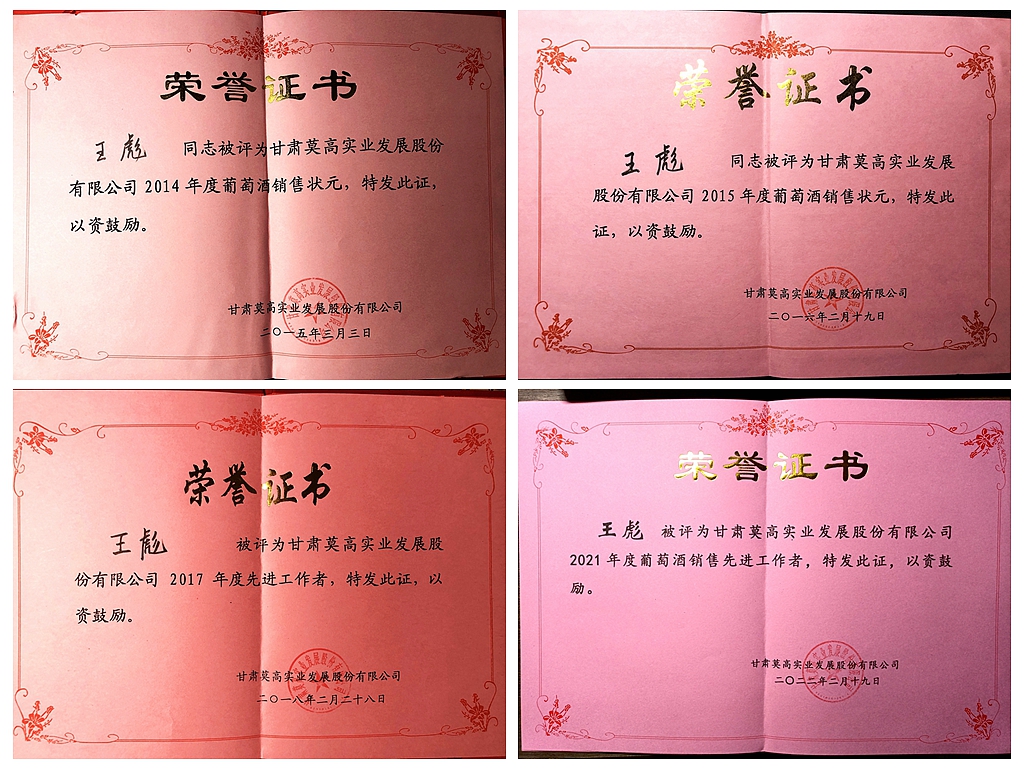 荣誉证书
王彪 同志被评为甘肃莫高实业发展股份
有限公司 2014 年度葡萄酒销售状元，特发此证，
以资鼓励。
甘肃莫高实业发展股份有限公司
二〇一五年三月三日
荣誉证书
王彪 同志被评为甘肃莫高实业发展
股份有限公司 2015 年度葡萄酒销售状元，特发此
证，以资鼓励。
甘肃莫高实业发展股份有限公司
二〇一六年二月十九日
荣誉证书
王彪 被评为甘肃莫高实业发展股
份有限公司 2017 年度先进工作者，特发此证，以
资鼓励。
甘肃莫高实业发展股份有限公司
二〇一八年二月二十八日
荣誉证书
王彪 被评为甘肃莫高实业发展股份有限公司
2021 年度葡萄酒销售先进工作者，特发此证，以资鼓
励。
甘肃莫高实业发展股份有限公司
二〇二二年二月十九日